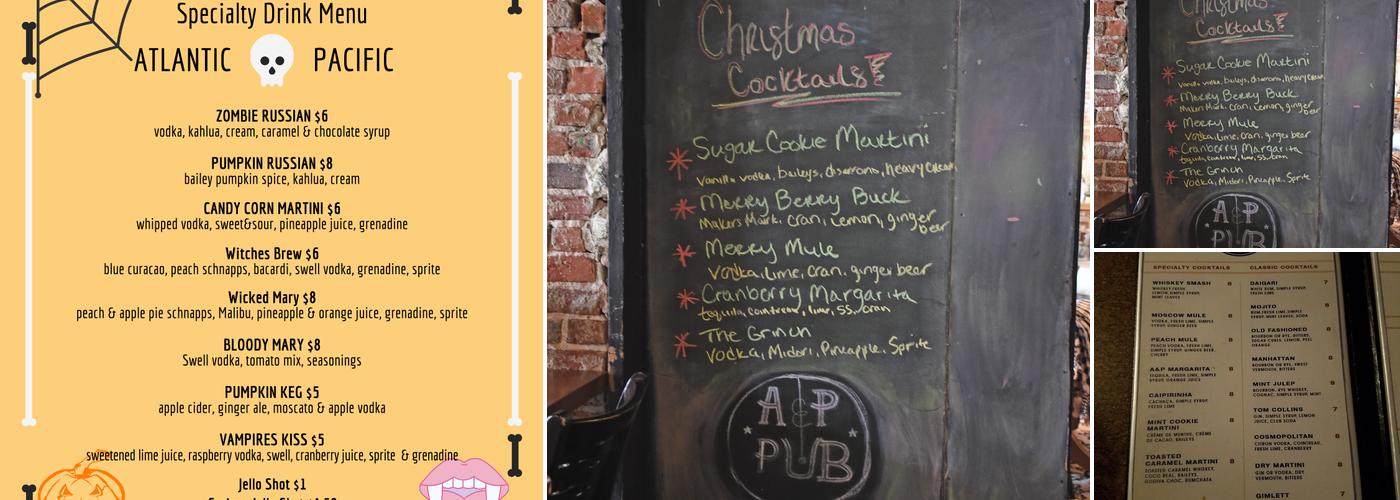 Specialty Drink Menu
ATLANTIC PACIFIC
ZOMBIE RUSSIAN $6
vodka, kahlua, cream, caramel & chocolate syrup
PUMPKIN RUSSIAN $8
bailey pumpkin spice, kahlua, cream
CANDY CORN MARTINI $6
whipped vodka, sweet&sour, pineapple juice, grenadine
Witches Brew $6
blue curacao, peach schnapps, bacardi, swell vodka, grenadine, sprite
Wicked Mary $8
peach & apple pie schnapps, Malibu, pineapple & orange juice, grenadine, sprite
BLOODY MARY $8
Swell vodka, tomato mix, seasonings
PUMPKIN KEG $5
apple cider, ginger ale, moscato & apple vodka
VAMPIRES KISS $5
sweetened lime juice, raspberry vodka, swell, cranberry juice, sprite & grenadine
Jello Shot $1
Christmas
Cocktails
Sugar Cookie Martini
Vanilla vodka, baileys, disarrono, heavy cream
Merry Berry Buck
Makers Mark, cran, Lemon, ginger
beer
Merry Mule
Vodka, lime, cran, ginger beer
Cranberry Margarita
tequila, cointreau, lime, SS, cran
The Grinch
Vodka, Midori, Pineapple, Sprite
A & P
PUB
Christmas
Cocktails
Sugar Cookie Martini
Vanilla vodka, baileys, disarrono, heavy cream
Merry Berry Buck
Makers Mark, cran, Lemon, ginger
beer
Merry Mule
Vodka, lime, cran, ginger beer
Cranberry Margarita
tequila, cointreau, lime, SS, cran
The Grinch
Vodka, Midori, Pineapple, Sprite
A & P
PUB
SPECIALTY COCKTAILS
WHISKEY SMASH 8
WHISKEY, FRESH
LEMON, SIMPLE SYRUP,
MINT LEAVES
MOSCOW MULE 8
VODKA, FRESH LIME, SIMPLE
SYRUP, GINGER BEER
PEACH MULE 8
PEACH VODKA, FRESH LIME,
SIMPLE SYRUP, GINGER BEER,
CHERRY
A&P MARGARITA 8
TEQUILA, FRESH LIME, SIMPLE
SYRUP, ORANGE JUICE
CAIPIRINHA 8
CACHAÇA, SIMPLE SYRUP,
FRESH LIME
MINT COOKIE
MARTINI 8
CRÈME DE MENTHE, CRÈME
DE CACAO, BAILEYS
TOASTED
CARAMEL MARTINI 8
TOASTED CARAMEL WHISKEY,
COCO RUM, BAILEYS,
GODIVA CHOC, BUMPCAKES
CLASSIC COCKTAILS
DAIQARI 7
WHITE RUM, SIMPLE SYRUP,
FRESH LIME
MOJITO 8
RUM, FRESH LIME, SIMPLE
SYRUP, MINT LEAVES, SODA
OLD FASHIONED 8
BOURBON OR RYE, BITTERS,
SUGAR CUBES, LEMON PEEL
ORANGE
MANHATTAN 8
BOURBON OR RYE, SWEET
VERMOUTH, BITTERS
MINT JULEP 9
BOURBON, RYE WHISKEY,
COGNAC, SIMPLE SYRUP, MINT
TOM COLLINS 7
GIN, SIMPLE SYRUP, LEMON
JUICE, CLUB SODA
COSMOPOLITAN 8
CITRON VODKA, COINTREAU,
FRESH LIME, CRANBERRY
DRY MARTINI 8
GIN OR VODKA, DRY
VERMOUTH, BITTERS
GIMLETT 7